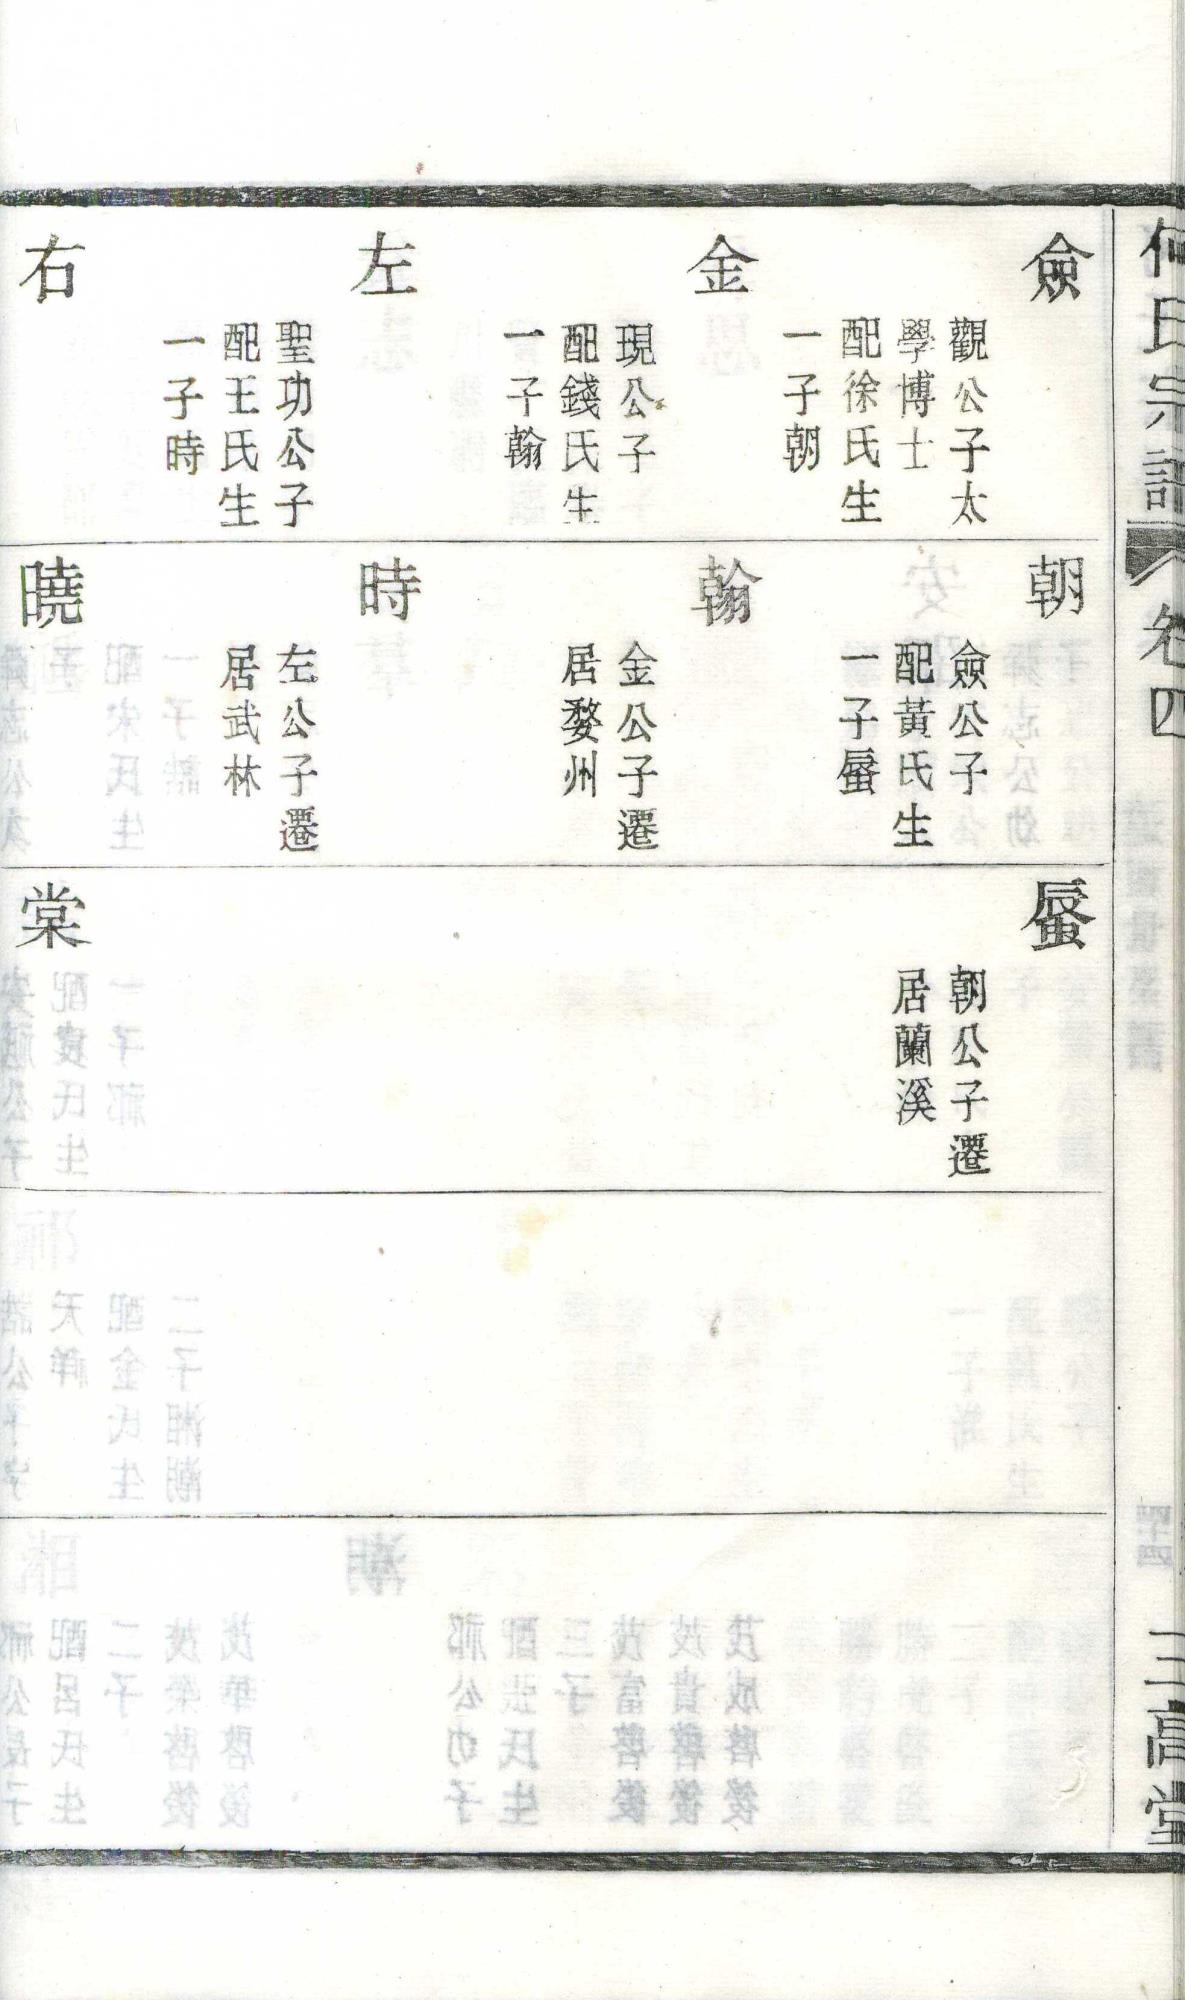 何氏宗譜
卷四
三高堂
僉
觀公子太
學博士
配徐氏生
一子朝
金
現公子
配錢氏生
一子翰
左
聖功公子
配王氏生
一子時
右
朝
僉公子
配黃氏生
一子蜃
翰
金公子遷
居婺州
時
左公子遷
居武林
曉
蜃
朝公子遷
居蘭溪
棠